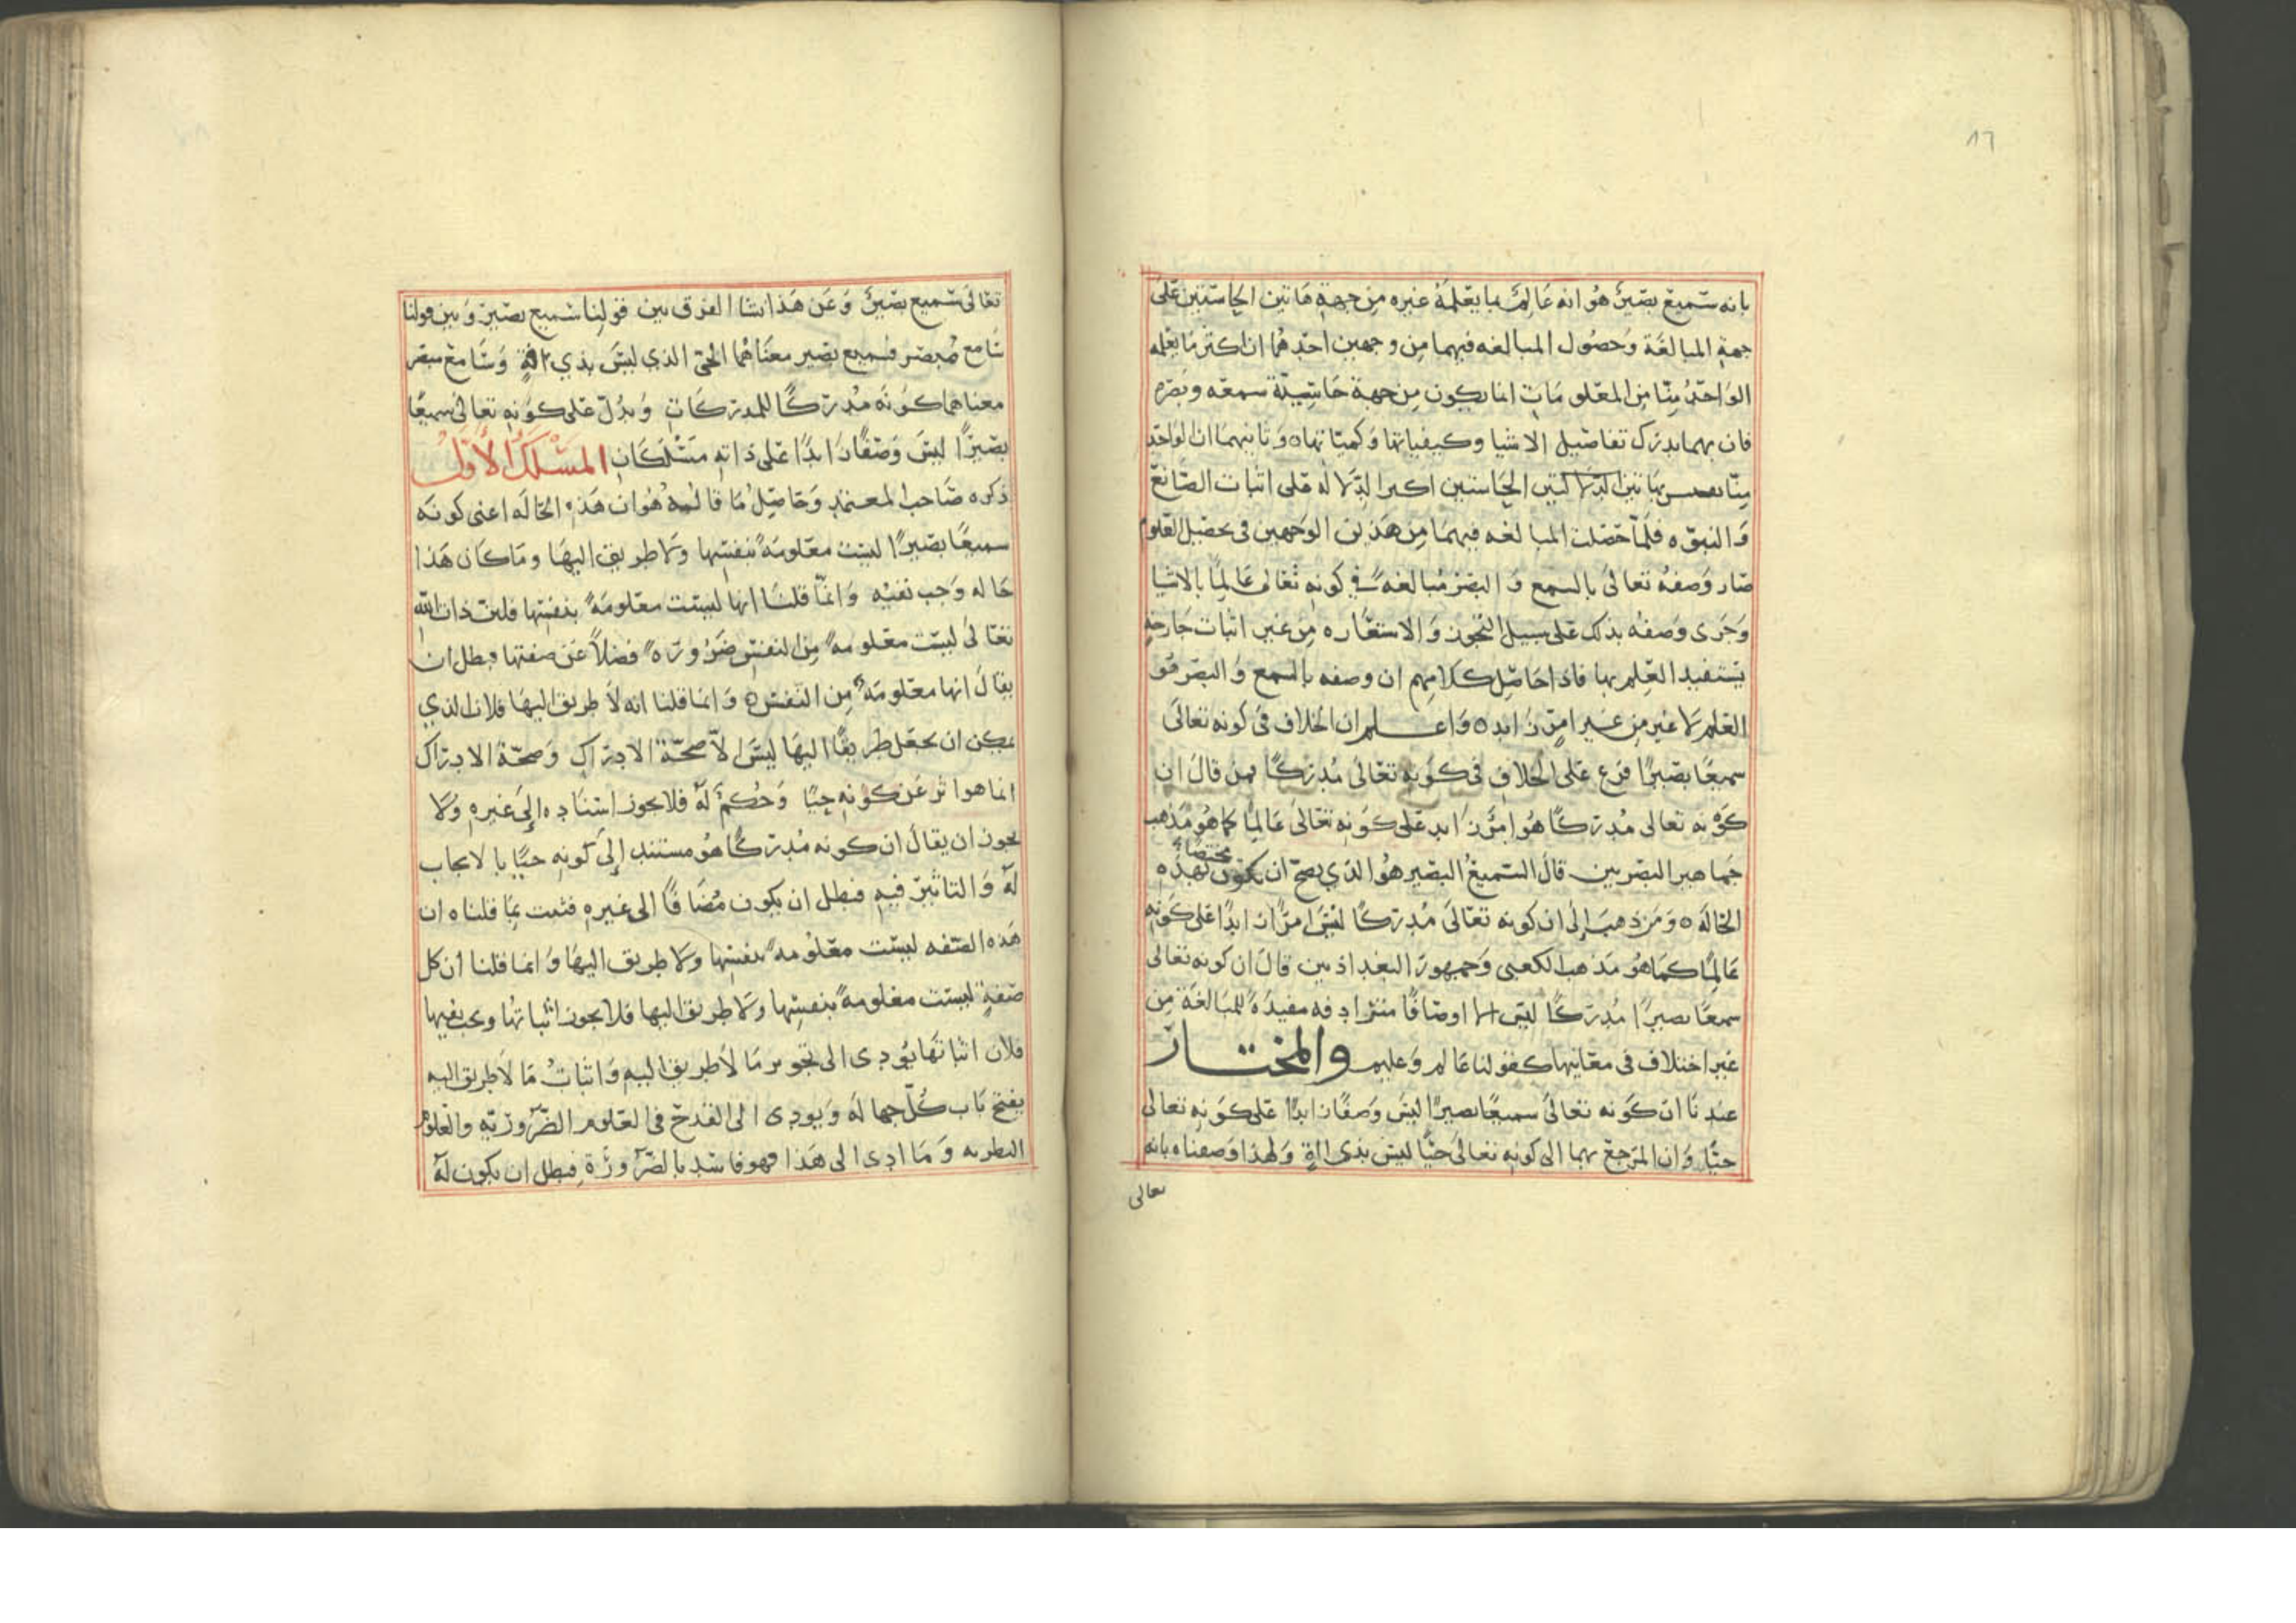 ٨٦
بانه سميع بصير هو انه عالم بما يعلمه غيره من جهة هاتين الحاستين على
جهة المبالغة وحصول المبالغه فيهما من وجهين احدهما ان اكثر ما يعلمه
الواحد منا من المعلومات انما يكون من جهة حاسية سمعه وبصره
فان بهما يدرك تفاصيل الاشيا وكيفياتها وكمياتها ٥ وثانيهما ان الواحد
منا بهاتين الحاستين اكبر الدلاله على اثبات الصانع
والنبوه فلما حصلت المبالغه فيهما من هذين الوجهين في تحصيل العلوم
صار وصفه تعالى بالسمع والبصر مبالغه في كونه تعالى عالما بالاشيا
وجرى وصفه بذلك على سبيل التجوز والاستعاره من غير اثبات جارحة
يستفيد العلم بها فاذا حاصل كلامهم ان وصفه بالسمع والبصر هو
العلم لا غير من غير امر زايد ٥ واعلم ان الخلاف في كونه تعالى
سميعا بصيرا فرع على الخلاف في كونه تعالى مدركا فمن قال ان
كونه تعالى مدركا هو امر زايد على كونه تعالى عالما كما هو مذهب
جماهير البصريين قال السميع البصير هو الذي يصح ان يكون مختصا بهذه
الحاله ٥ ومن ذهب إلى ان كونه تعالى مدركا ليس امرا زايدا على كونه
عالما كما هو مذهب الكعبي وجمهور البغداذيين قال ان كونه تعالى
سميعا بصيرا مدركا ليس الا اوصافا مترادفه مفيدة للمبالغة من
غير اختلاف في معانيها كقولنا عالم وعليم والمختار
عندنا ان كونه تعالى سميعا بصيرا ليس وصفا زايدا على كونه تعالى
حيا وان المرجع بهما الى كونه تعالى حيا ليس بذي افة ولهذا وصفناه بانه
تعالى
تعالى سميع بصير وعن هذا نشا الفرق بين قولنا سميع بصير وبين قولنا
سامع مبصر فسميع بصير معناهما الحي الذي ليس بذي افة وسامع مبصر
معناهما كونه مدركا للمدركات ويدل على كونه تعالى سميعا
بصيرا ليس وصفا زايدا على ذاته مسلكان المسلك الأول
ذكره صاحب المعتمد وحاصل ما قاله هو ان هذه الحاله اعنى كونه
سميعا بصيرا ليست معلومة بنفسها ولا طريق اليها وما كان هذا
حاله وجب نفيه وانما قلنا انها ليست معلومة بنفسها فلان ذات الله
تعالى ليست معلومه من النفس ضروره فضلا عن صفتها فبطل ان
يقال انها معلومة من النفس ٥ وانما قلنا انه لا طريق اليها فلان الذي
يمكن ان يجعل طريقا اليها ليس لا صحة الادراك وصحة الادراك
انما هو اثر عن كونه حيا وحكم له فلا يجوز اسناده إلى غيره ولا
يجوز ان يقال ان كونه مدركا هو مستند إلى كونه حيا بالايجاب
له والتاثير فيه فبطل ان يكون مضافا الى غيره فثبت بما قلناه ان
هذه الصفه ليست معلومه بنفسها ولا طريق اليها وانما قلنا ان كل
صفة ليست معلومة بنفسها ولا طريق اليها فلا يجوز اثباتها ويجب نفيها
فلان اثباتها يؤدى الى تجويز ما لا طريق اليه واثبات ما لا طريق اليه
يفتح باب كل جهاله ويودى الى القدح في العلوم الضرورية والعلوم
النظريه وما ادى الى هذا فهو فاسد بالضرورة فبطل ان يكون له